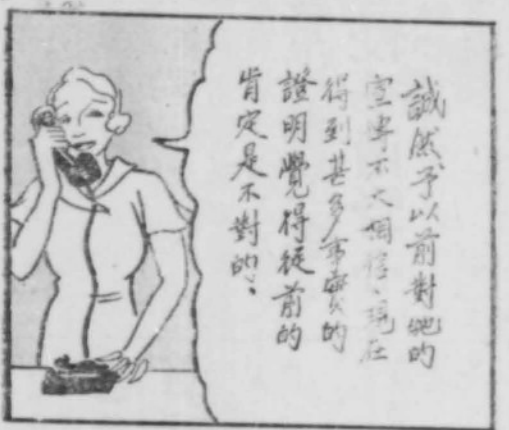 誠然予以前對她的
宣傳不大相信、現在
得到甚多事實的
證明覺得從前的
肯定是不對的、